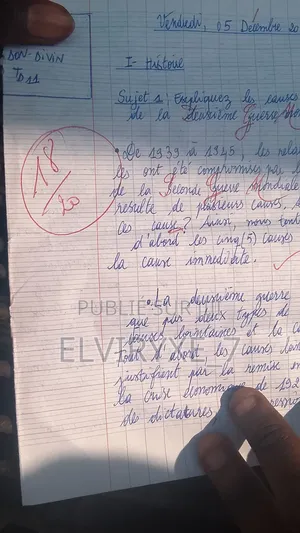 Vendredi, 05 Décembre 20
DON-DIVIN
TD11
I- Histoire
Sujet 1: Expliquez les causes
de la deuxième Guerre
18/20
De 1939 à 1945, les rela
les ont été compromises par l
de la Seconde Guerre Mondiale
résulte de plusieurs causes,
ces causes? Ainsi, nous tent
d'abord les cinq (5) causes
la cause immédiate.
La deuxième guerre
que par deux types de
causes lointaines et la c
Tout d'abord les causes loin
justifient par la remise en
la crise économique de 192
des dictatures
PUBLIÉ SUR
ELVIRYXE_7